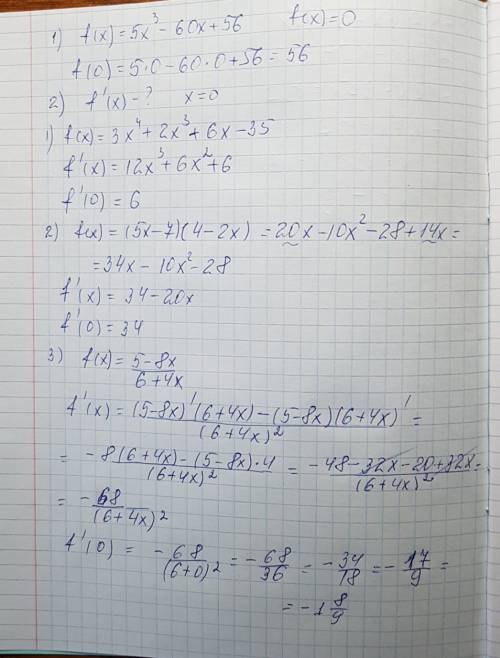 1) f(x)=5x³-60x+56 f(x)=0
f(0)=5·0-60·0+56=56
2) f'(x)-? x=0
1) f(x)=3x⁴+2x³+6x-35
f'(x)=12x³+6x²+6
f'(0)=6
2) f(x)=(5x-7)(4-2x)=20x-10x²-28+14x=
=34x-10x²-28
f'(x)=34-20x
f'(0)=34
3) f(x)=(5-8x)/(6+4x)
f'(x)=((5-8x)'(6+4x)-(5-8x)(6+4x)')/(6+4x)²=
=(-8(6+4x)-(5-8x)·4)/(6+4x)²=(-48-32x-20+32x)/(6+4x)²=
=-68/(6+4x)²
f'(0)=-68/(6+0)²=-68/36=-34/18=-17/9=
=-1 8/9